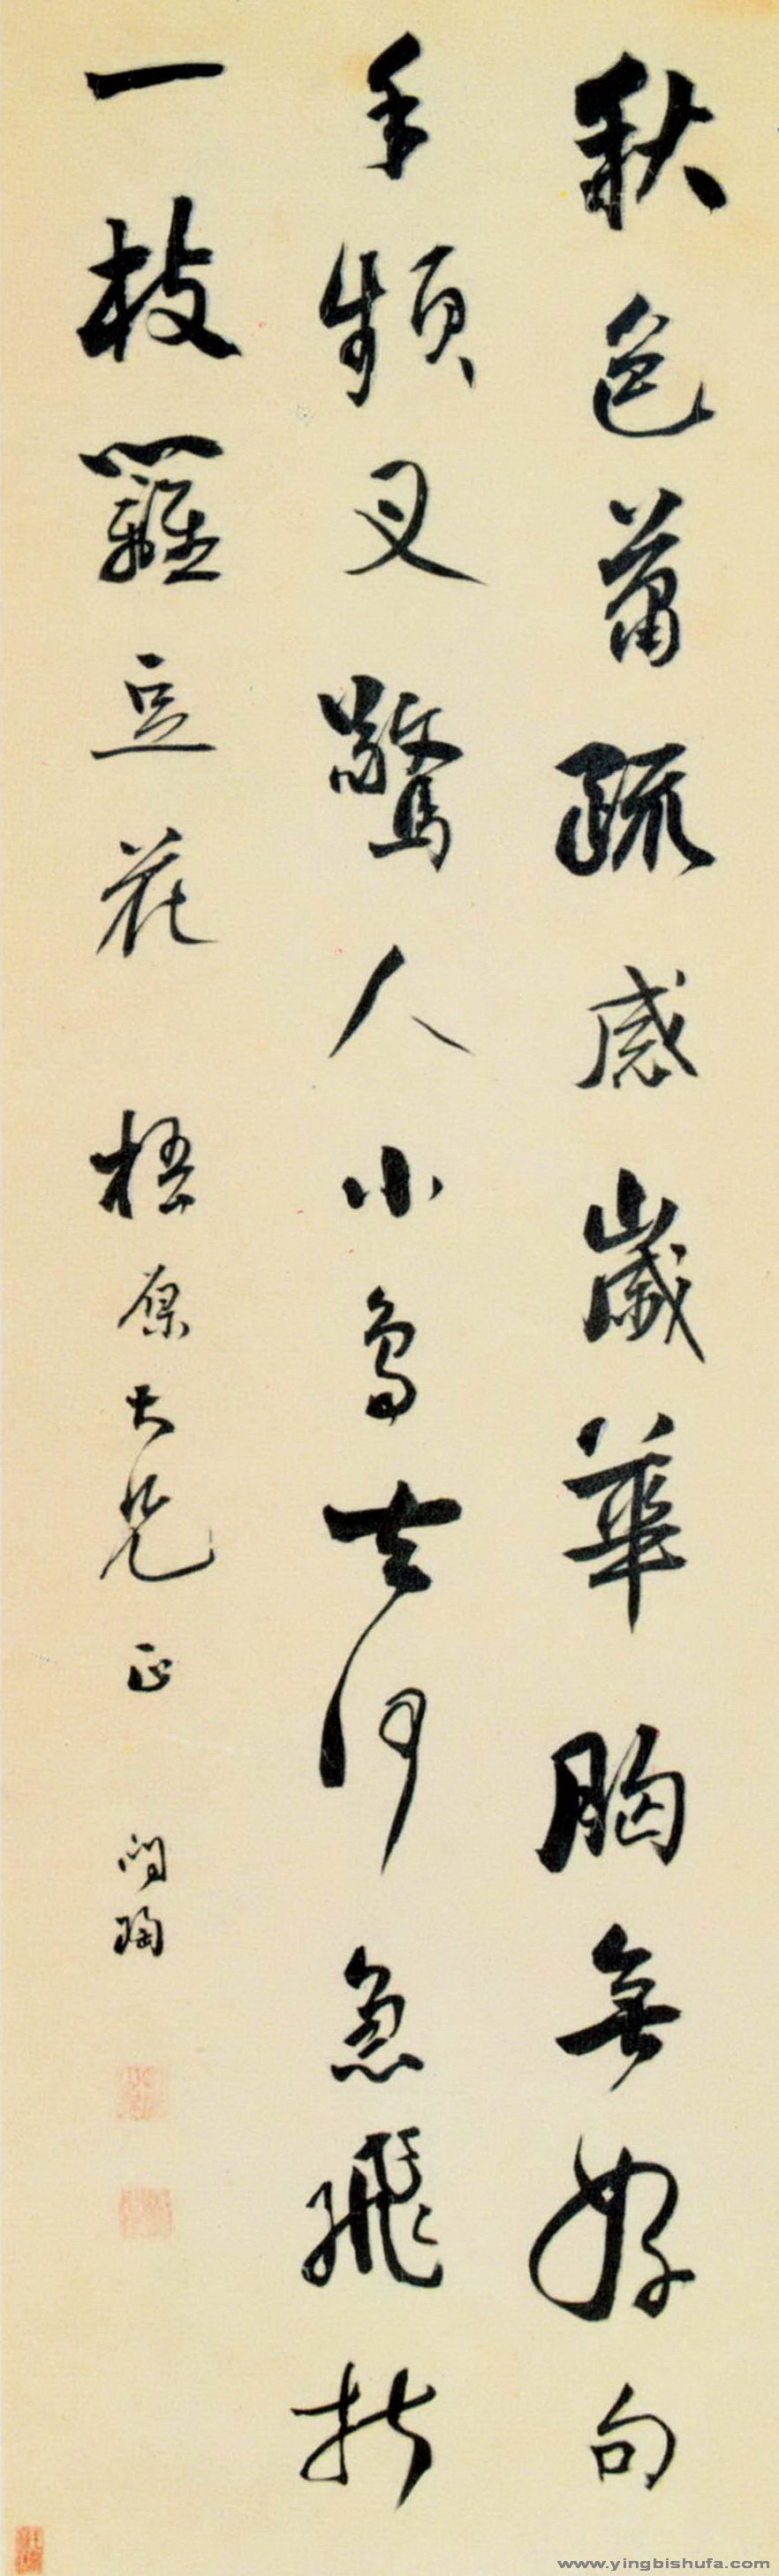 秋色蕭疏感歲華胸無好句
手頻叉驚人小鳥去何急飛折
一枝籬豆花 梧原大兄正 問陶
www.yingbishufa.com